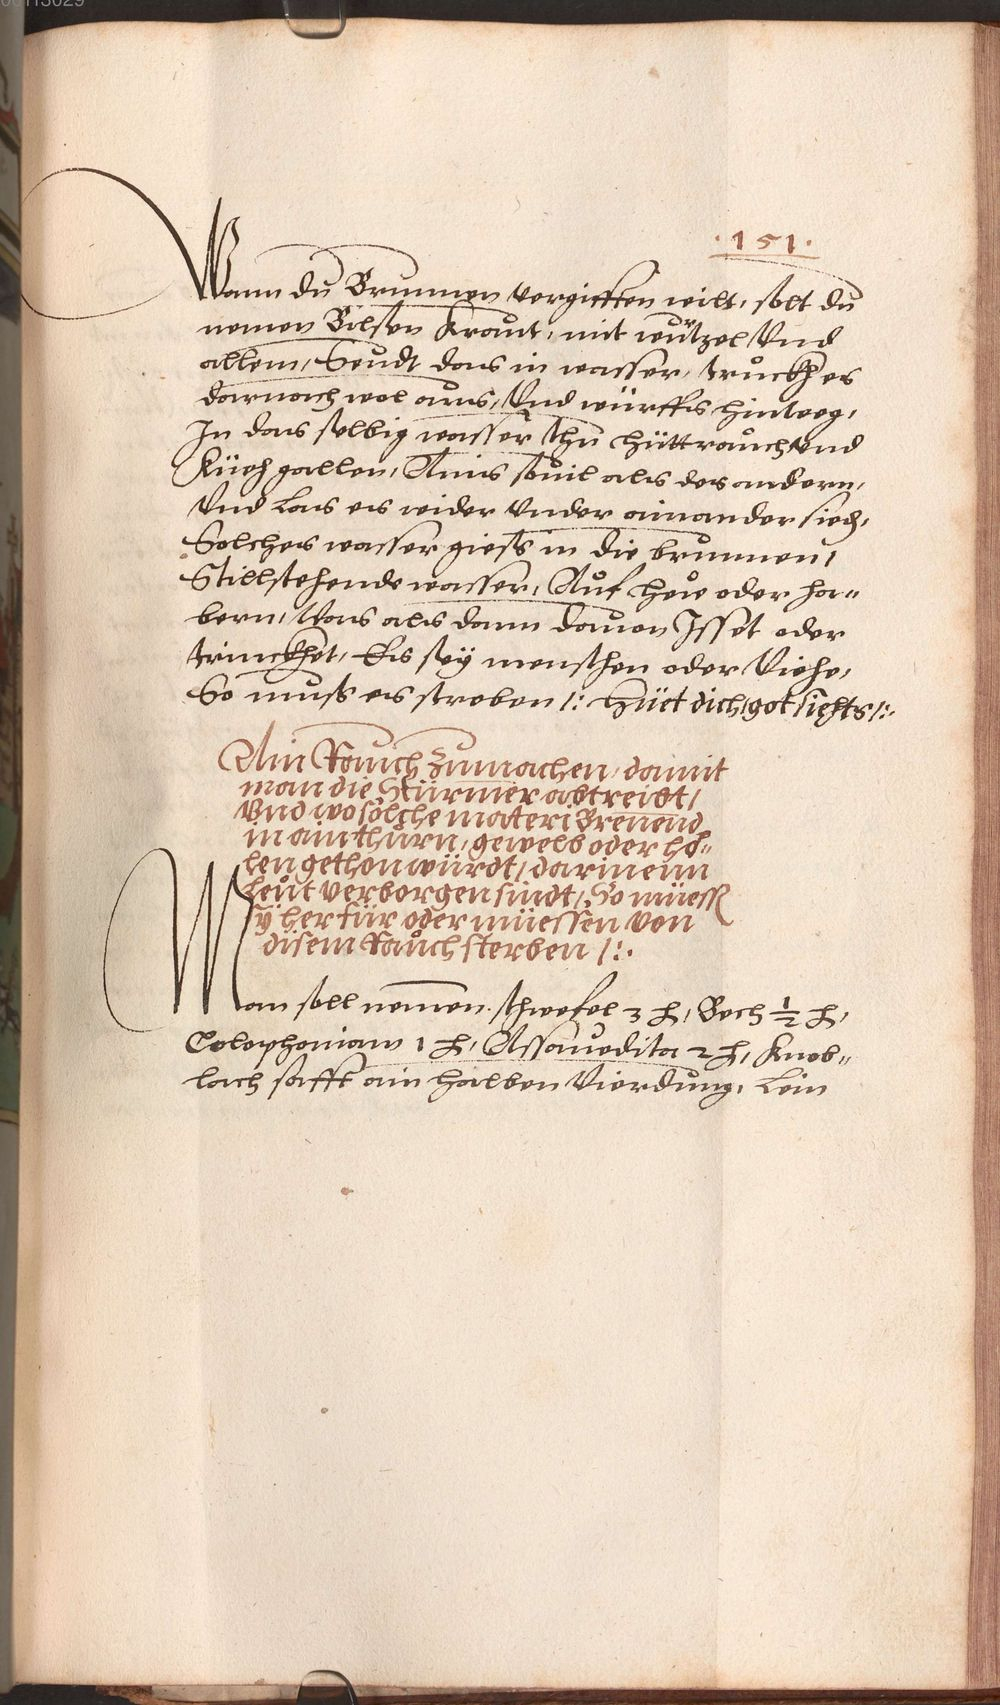 00113029
·151·
Wann du Brunnen vergifften wilt, solt du
nemen Bilsen Kraut, mit wurtzel Vnd
allem, Seudt das in wasser, truckh es
darnach wol aus, Vnd würffs hinweg,
In das selbig wasser thu hüttrauch vnd
Küeh gallen, Ains souil als des andern,
Vnd Las es wider vnder ainander sied,
Solches wasser giess in die brunnen,
Stillstehende wasser, Auf heu oder ha-
bern, Was als dann dauon Isset oder
trinckhet, Es seÿ menschen oder Viehe,
So muss es streben /: Hüet dich, got siehts /:.
Ain Rauch zumachen, damit
man die Stürmer abtreibt,
Vnd wo sölche materi Brenend
in ain thurn, gewelb oder hö-
len gethon würdt, darinenn
leut verborgen sindt, So müessn
sÿ herfür oder müessen von
disem Rauch sterben /:.
Man soll nemen schwefel 3 ℔, Bech ½ ℔,
Colophoniam 1 ℔, Assauedita 2 ℔, Knob-
lach safft ain halben Vierdung, Lein